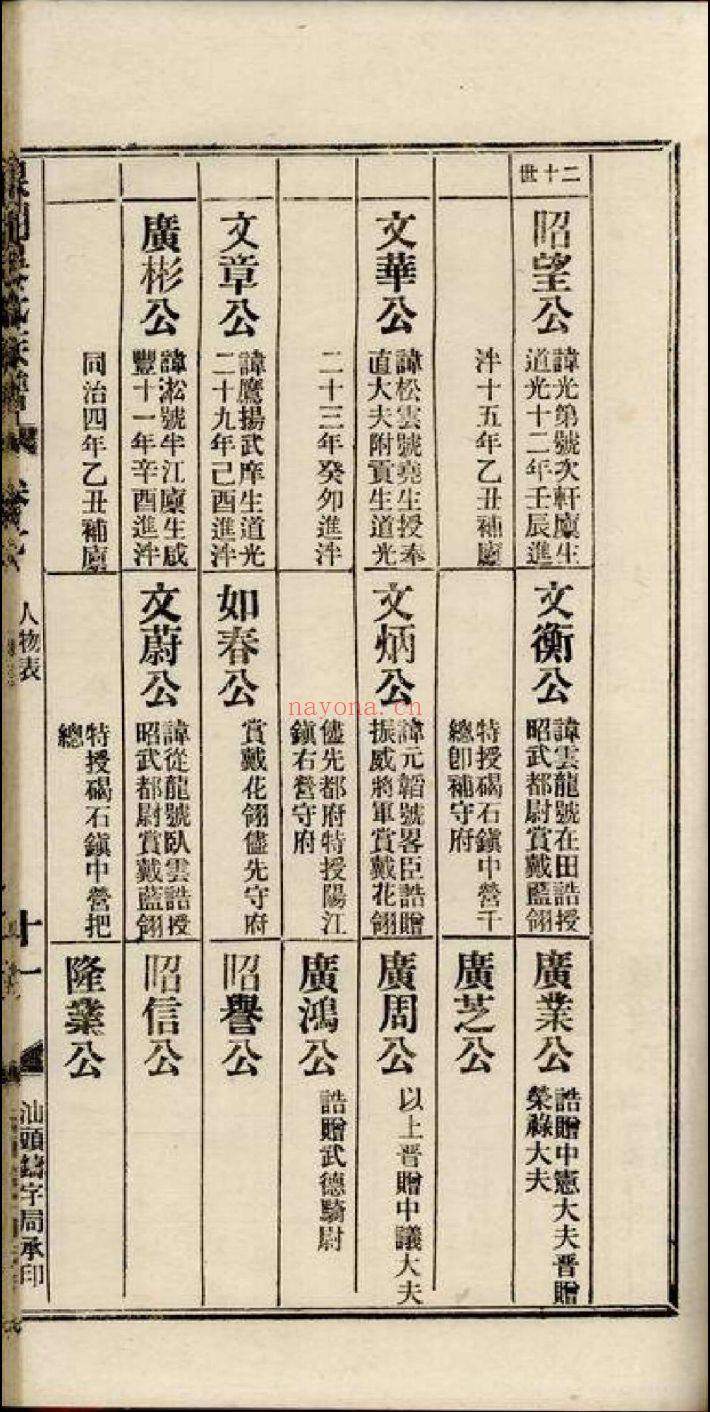 二十世
昭望公
諱光第號次軒廩生
道光十二年壬辰進
泮十五年乙丑補廩
文華公
諱松雲號堯生授奉
直大夫附貢生道光
二十三年癸卯進泮
文章公
諱鷹揚武庠生道光
二十九年己酉進泮
廣彬公
諱淞號半江廩生咸
豐十一年辛酉進泮
同治四年乙丑補廩
文衡公
諱雲龍號在田誥授
昭武都尉賞戴藍翎
特授碣石鎮中營千
總卽補守府
文炳公
諱元韜號畧臣誥贈
振威將軍賞戴花翎
儘先都府特授陽江
鎮右營守府
如春公
賞戴花翎儘先守府
文蔚公
諱從龍號臥雲誥授
昭武都尉賞戴藍翎
特授碣石鎮中營把
總
廣業公
誥贈中憲大夫晋贈
榮祿大夫
廣芝公
廣周公
以上晋贈中議大夫
廣鴻公
誥贈武德騎尉
昭譽公
昭信公
隆業公
人物表
十一
汕頭鑄字局承印
nayona.cn